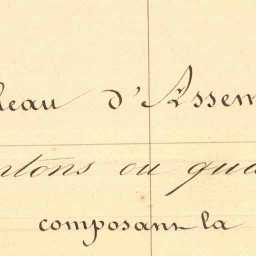 leau d'Assem
ntons ou qua
composant la